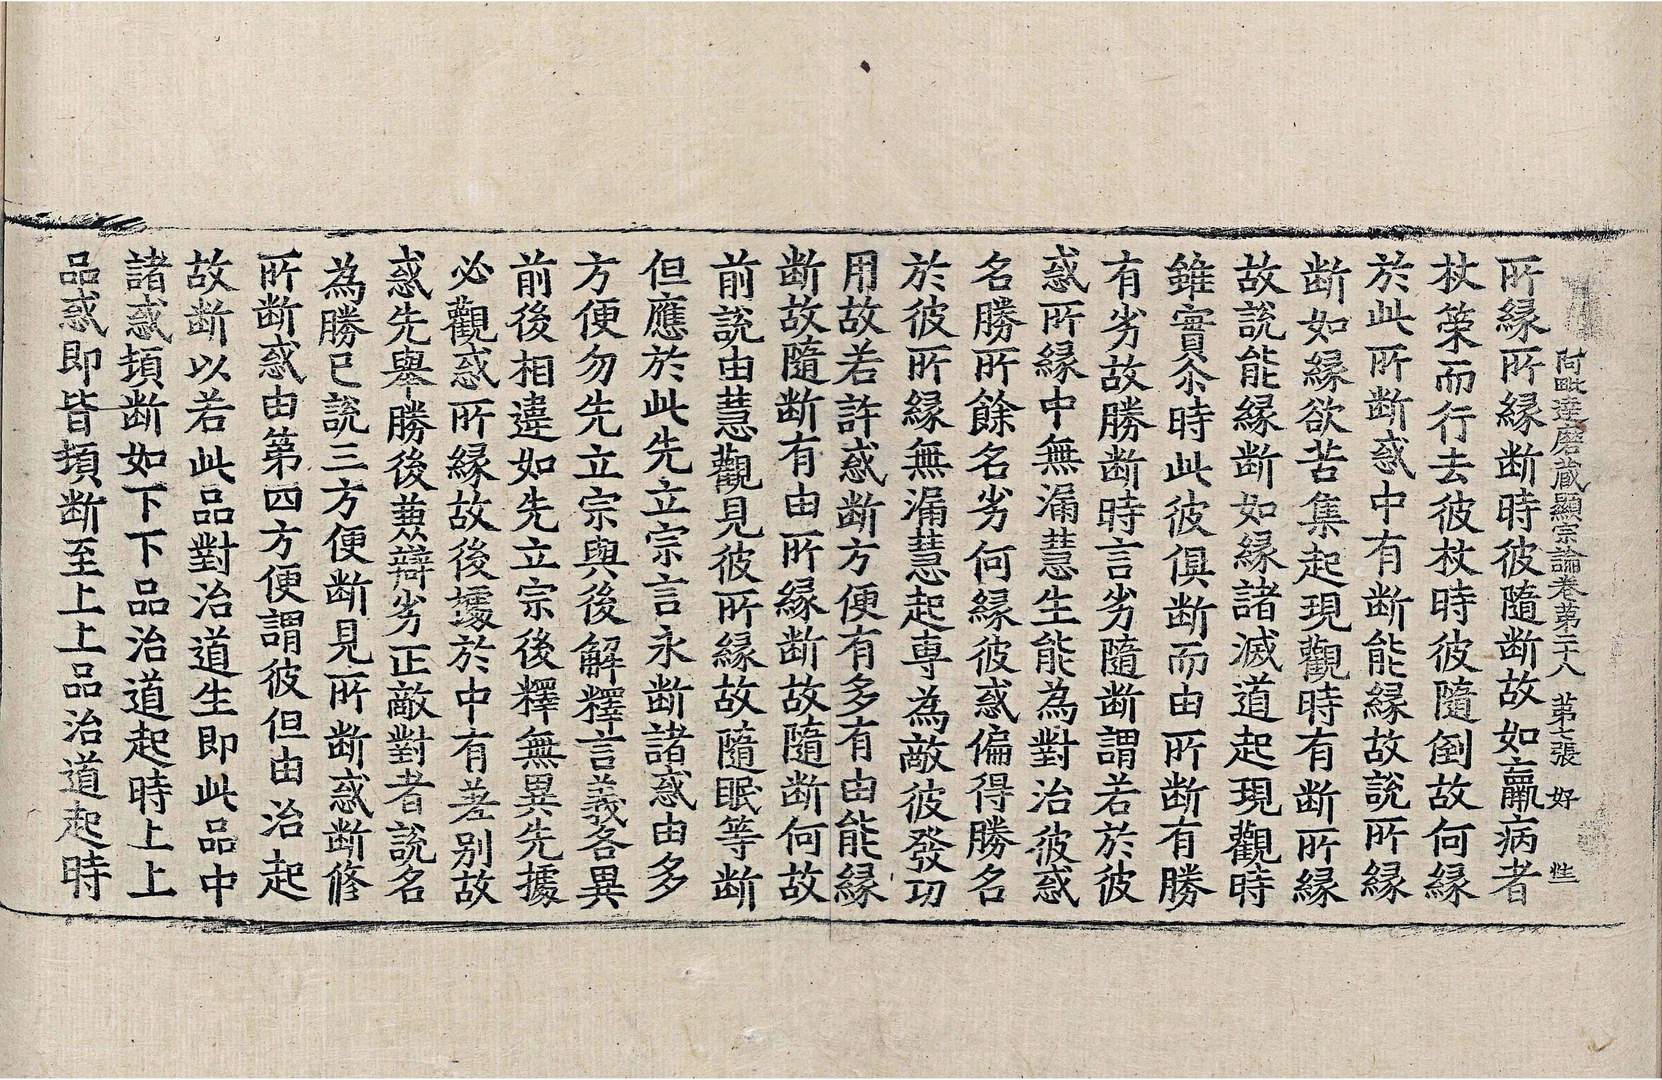 阿毗達磨藏顯宗論卷第二十八 第七張 好 性
所縁所縁斷時彼隨斷故如羸病者
杖策而行去彼杖時彼隨倒故何縁
於此所斷惑中有斷能縁故說所縁
斷如縁欲苦集起現觀時有斷所縁
故說能縁斷如縁諸滅道起現觀時
雖實尒時此彼俱斷而由所斷有勝
有劣故勝斷時言劣隨斷謂若於彼
惑所縁中無漏慧生能為對治彼惑
名勝所餘名劣何縁彼惑偏得勝名
於彼所縁無漏慧起專為敵彼發功
用故若許惑斷方便有多有由能縁
斷故隨斷有由所縁斷故隨斷何故
前說由慧觀見彼所縁故隨眠等斷
但應於此先立宗言永斷諸惑由多
方便勿先立宗與後解釋言義各異
前後相違如先立宗後釋無異先據
必觀惑所縁故後據於中有差別故
惑先舉勝後兼辯劣正敵對者說名
為勝已說三方便斷見所斷惑斷修
所斷惑由第四方便謂彼但由治起
故斷以若此品對治道生即此品中
諸惑頓斷如下下品治道起時上上
品惑即皆頓斷至上上品治道起時